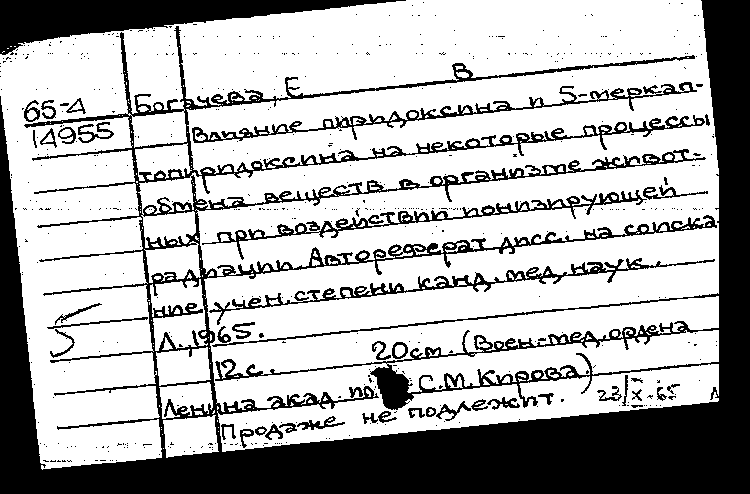 65-4 Богачева, Е В
14955 Влияние пиридоксина и 5-меркап-
топиридоксина на некоторые процессы
обмена веществ в организме живот-
ных при воздействии ионизирующей
радиации. Автореферат дисс. на соиска
ние учен. степени канд. мед. наук.
Л., 1965.
12 с. 20 см. (Воен-мед. ордена
Ленина акад. С.М. Кирова.)
Продаже не подлежит. 23/X-65